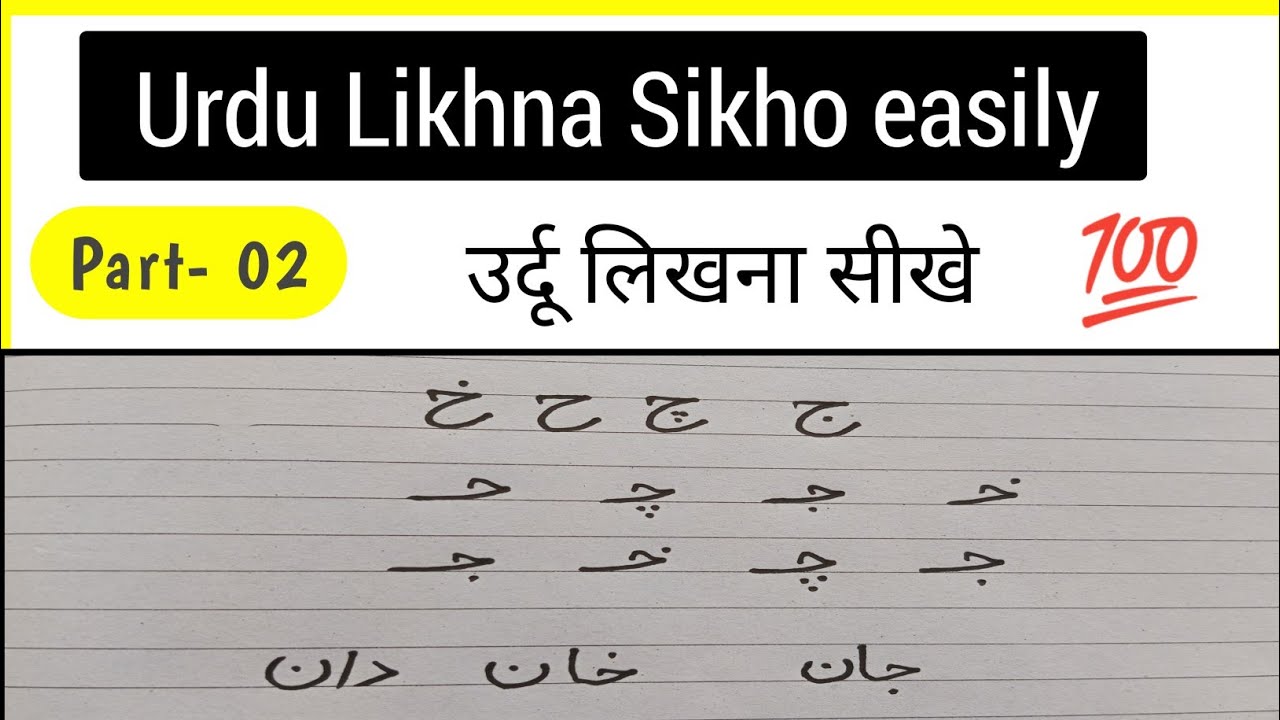 Urdu Likhna Sikho easily
Part- 02 उर्दू लिखना सीखे 💯
ج چ ح خ
خـ جـ چـ حـ
جـ چـ خـ جـ
جان خان دان